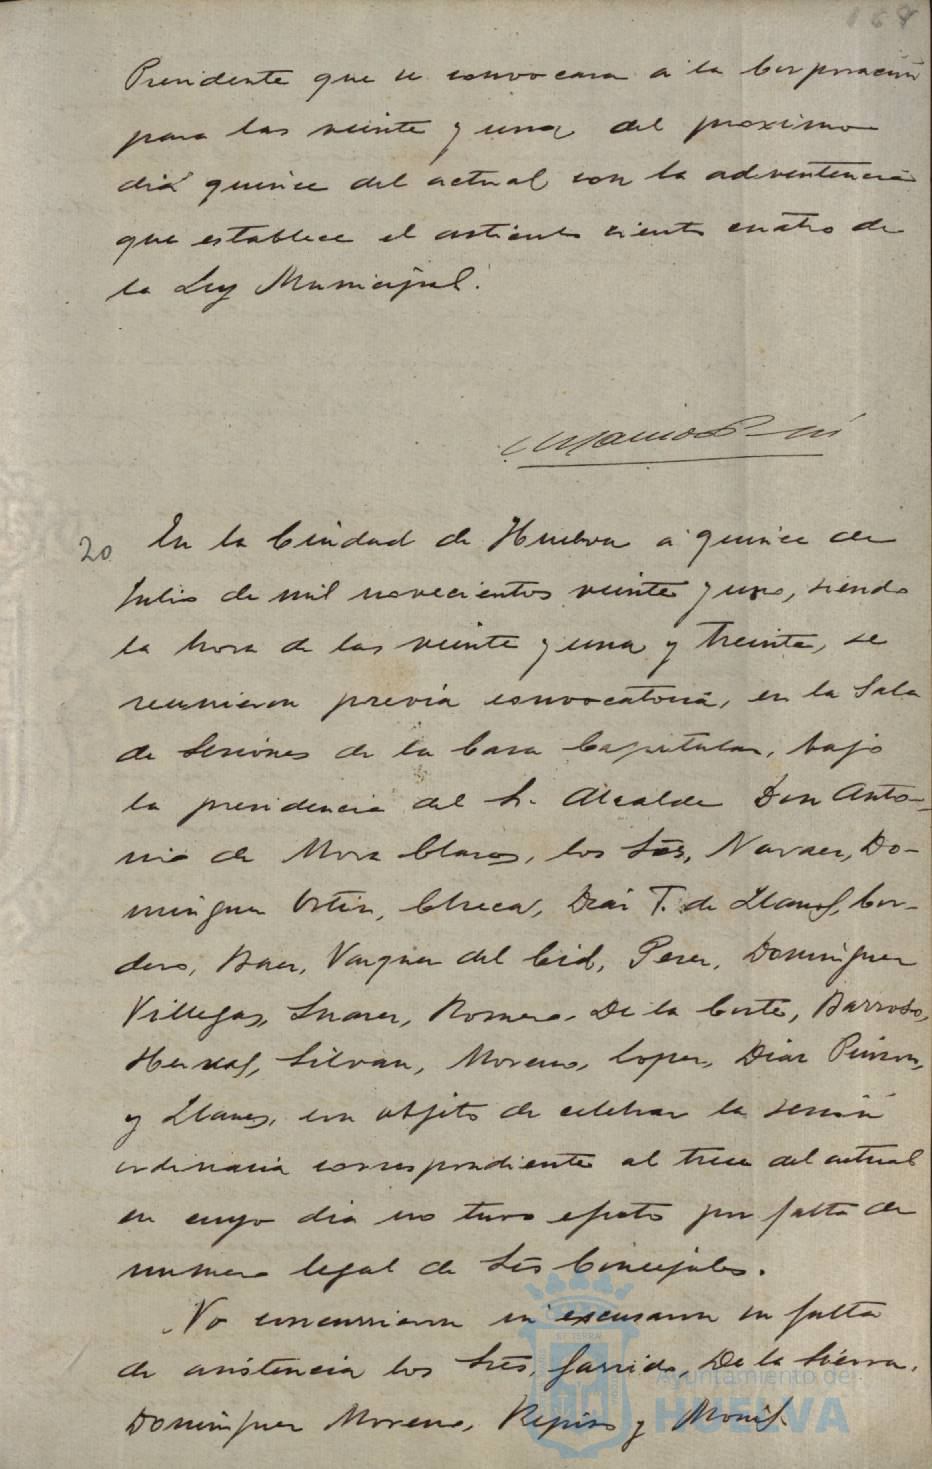 Presidente que se convocara á la Corporación
para las veinte y una del proximo
dia quince del actual con la advertencia
que establece el articulo ciento cuatro de
la Ley Municipal.
20 En la Ciudad de Huelva á quince de
Julio de mil novecientos veinte y uno, siendo
la hora de las veinte y una y treinta, se
reunieron previa convocatoria, en la Sala
de Sesiones de la Casa Capitular, bajo
la presidencia del Sr. Alcalde Don Anto-
nio de Mora Claros, los Sres, Narvaez, Do-
minguez Ortiz, Checa, Diaz T. de Llanos, Cor-
dero, Baez, Vazquez del Cid, Perez, Dominguez
Villegas, Suarez, Romero, De la Corte, Barroso,
Silván, Moreno, Lopez, Diaz Pinzon,
y Llanes, con objeto de celebrar la sesión
ordinaria correspondiente al trece del actual
en cuyo dia no tuvo efecto por falta de
numero legal de Sres Concejales.
No concurrieron ni excusaron su falta
de asistencia los Sres, Garrido, De la Sierra,
Dominguez Moreno, y
Ayuntamiento de
HUELVA